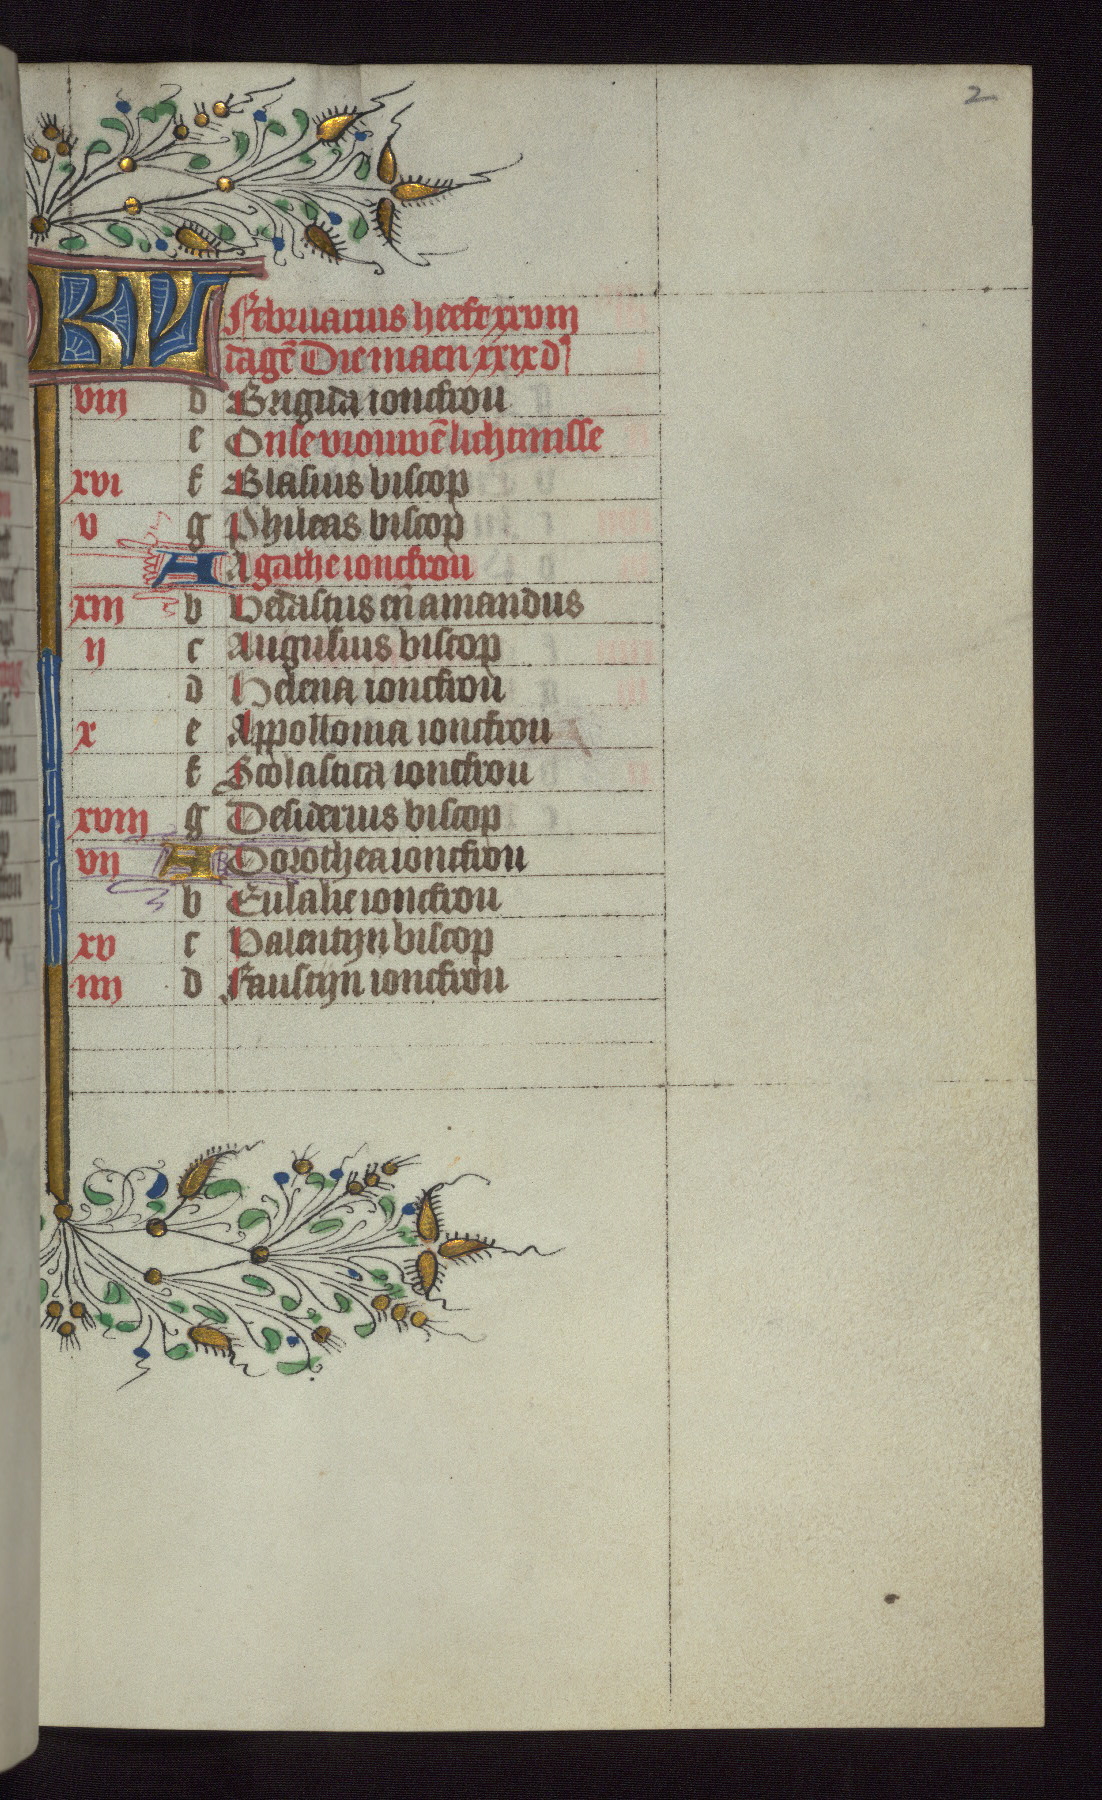 2
KV Februarius heeft xxviij
dagē Die maen xxix dʼ
viij d Brigida ionckvrou
e Onse vrouwē lichtmisse
xvi f Blasius biscop
v g Phileas biscop
A Agathe ionckvrou
xiij b Vedastus eñ amandus
ij c Augulius biscop
d Helena ionckvrou
x e Appollonia ionckvrou
f Scolastica ionckvrou
xviij g Desiderius biscop
vij A Dorothea ionckvrou
b Eulalie ionckvrou
xv c Valentijn biscop
iiij d Faustijn ionckvrou